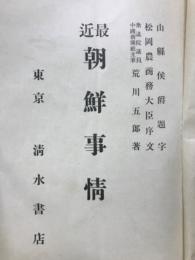 山縣侯爵題字
松岡農商務大臣序文
衆議院議員
中國新聞社主筆
荒川五郎著
最近
朝鮮事情
東京 清水書店